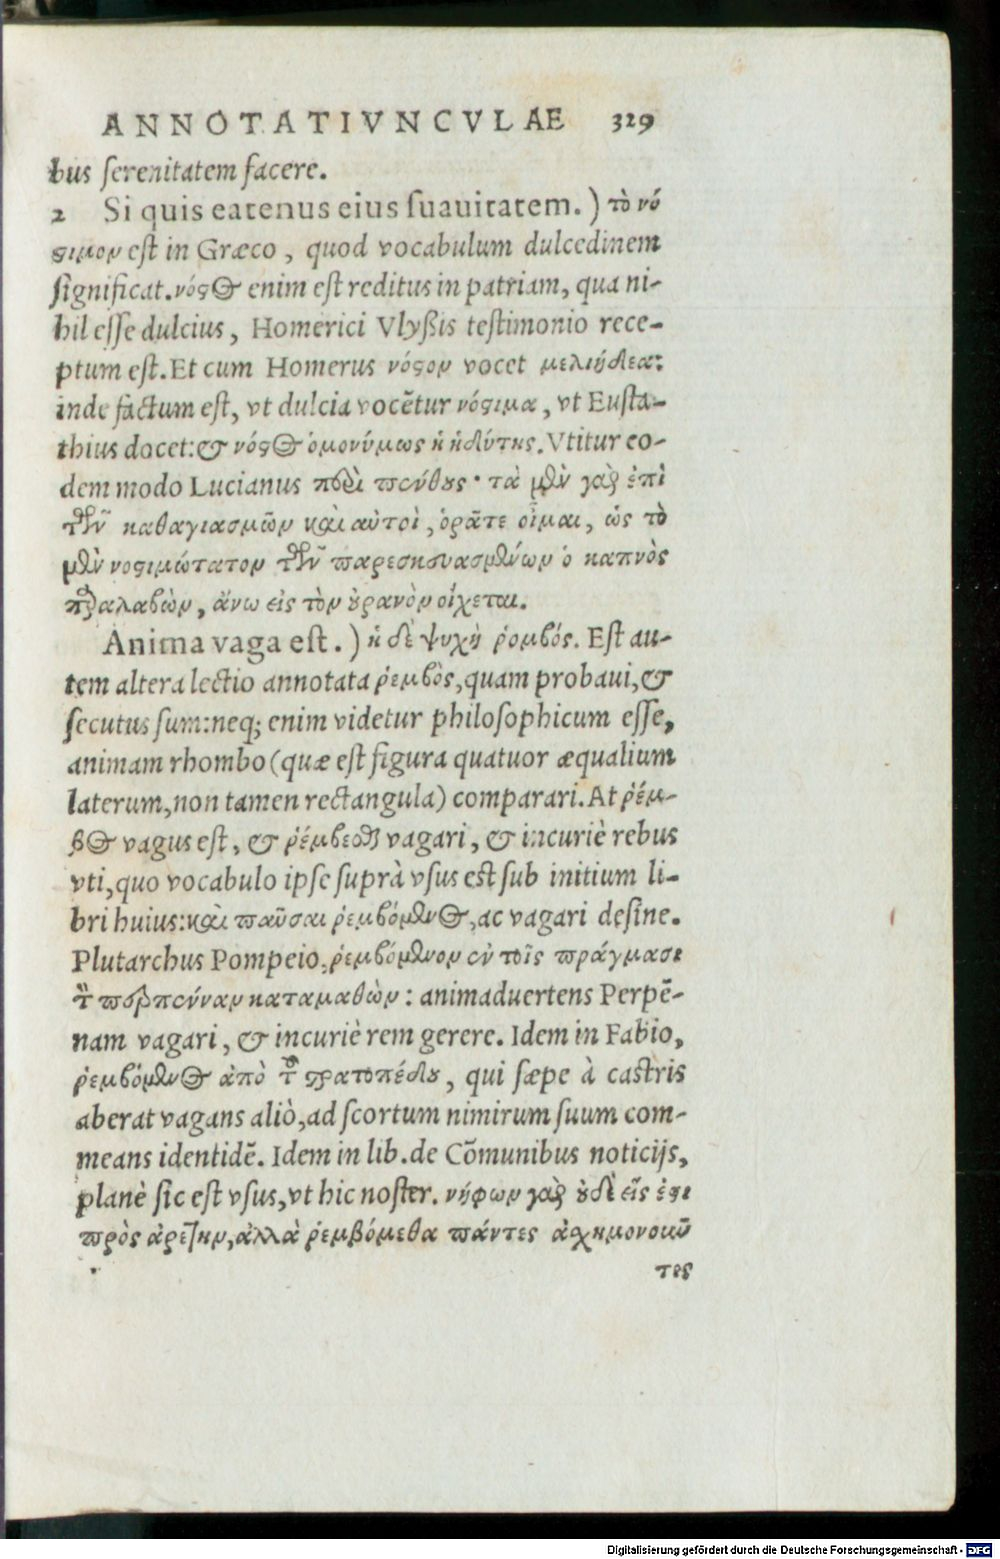 ANNOTATIVNCVLAE 329
bus ſerenitatem facere.
2 Si quis eatenus eius ſuauitatem.) τὸ νό
ϛιμον eſt in Græco, quod vocabulum dulcedinem
ſignificat. νόϛος enim eſt reditus in patriam, qua ni-
hil eſſe dulcius, Homerici Vlyßis teſtimonio rece-
ptum eſt. Et cum Homerus νόϛον vocet μελιηδέα:
inde factum eſt, vt dulcia vocẽtur νόϛιμα, vt Euſta-
thius docet: & νόϛος ὁμονύμως ἡ ἡδύτης. Vtitur eo-
dem modo Lucianus περὶ πένθους· τὰ μὲν γὰρ ἐπὶ
τῶν καθαγιασμῶν καὶ αὐτοὶ, ὁρᾶτε οἶμαι, ὡς τὸ
μὲν νοϛιμώτατον τῶν παρεσκευασμένων ὁ καπνὸς
παραλαβὼν, ἄνω εἰς τὸν οὐρανὸν οἴχεται.
Anima vaga eſt.) ἡ δὲ ψυχὴ ῥομβός. Eſt au-
tem altera lectio annotata ῥεμβὸς, quam probaui, &
ſecutus ſum: neq; enim videtur philoſophicum eſſe,
animam rhombo (quæ eſt figura quatuor æqualium
laterum, non tamen rectangula) comparari. At ῥέμ-
βος vagus eſt, & ῥέμβεσθαι vagari, & incuriè rebus
vti, quo vocabulo ipſe ſuprà vſus eſt ſub initium li-
bri huius: καὶ παῦσαι ῥεμβόμενος, ac vagari deſine.
Plutarchus Pompeio, ῥεμβόμενον ἐν τοῖς πράγμασι
τὸν περπένναν καταμαθὼν: animaduertens Perpẽ-
nam vagari, & incuriè rem gerere. Idem in Fabio,
ῥεμβόμενος ἀπὸ τοῦ ϛρατοπέδου, qui ſæpe à caſtris
aberat vagans aliò, ad ſcortum nimirum ſuum com-
means identidẽ. Idem in lib. de Cõmunibus noticijs,
planè ſic eſt vſus, vt hic noſter. νήφων γὰρ οὐδὲ εἷς ἐϛι
πρὸς ἀρετὴν, ἀλλὰ ῥεμβόμεθα πάντες ἀσχημονοῦν
τες
Digitalisierung gefördert durch die Deutsche Forschungsgemeinschaft - DFG